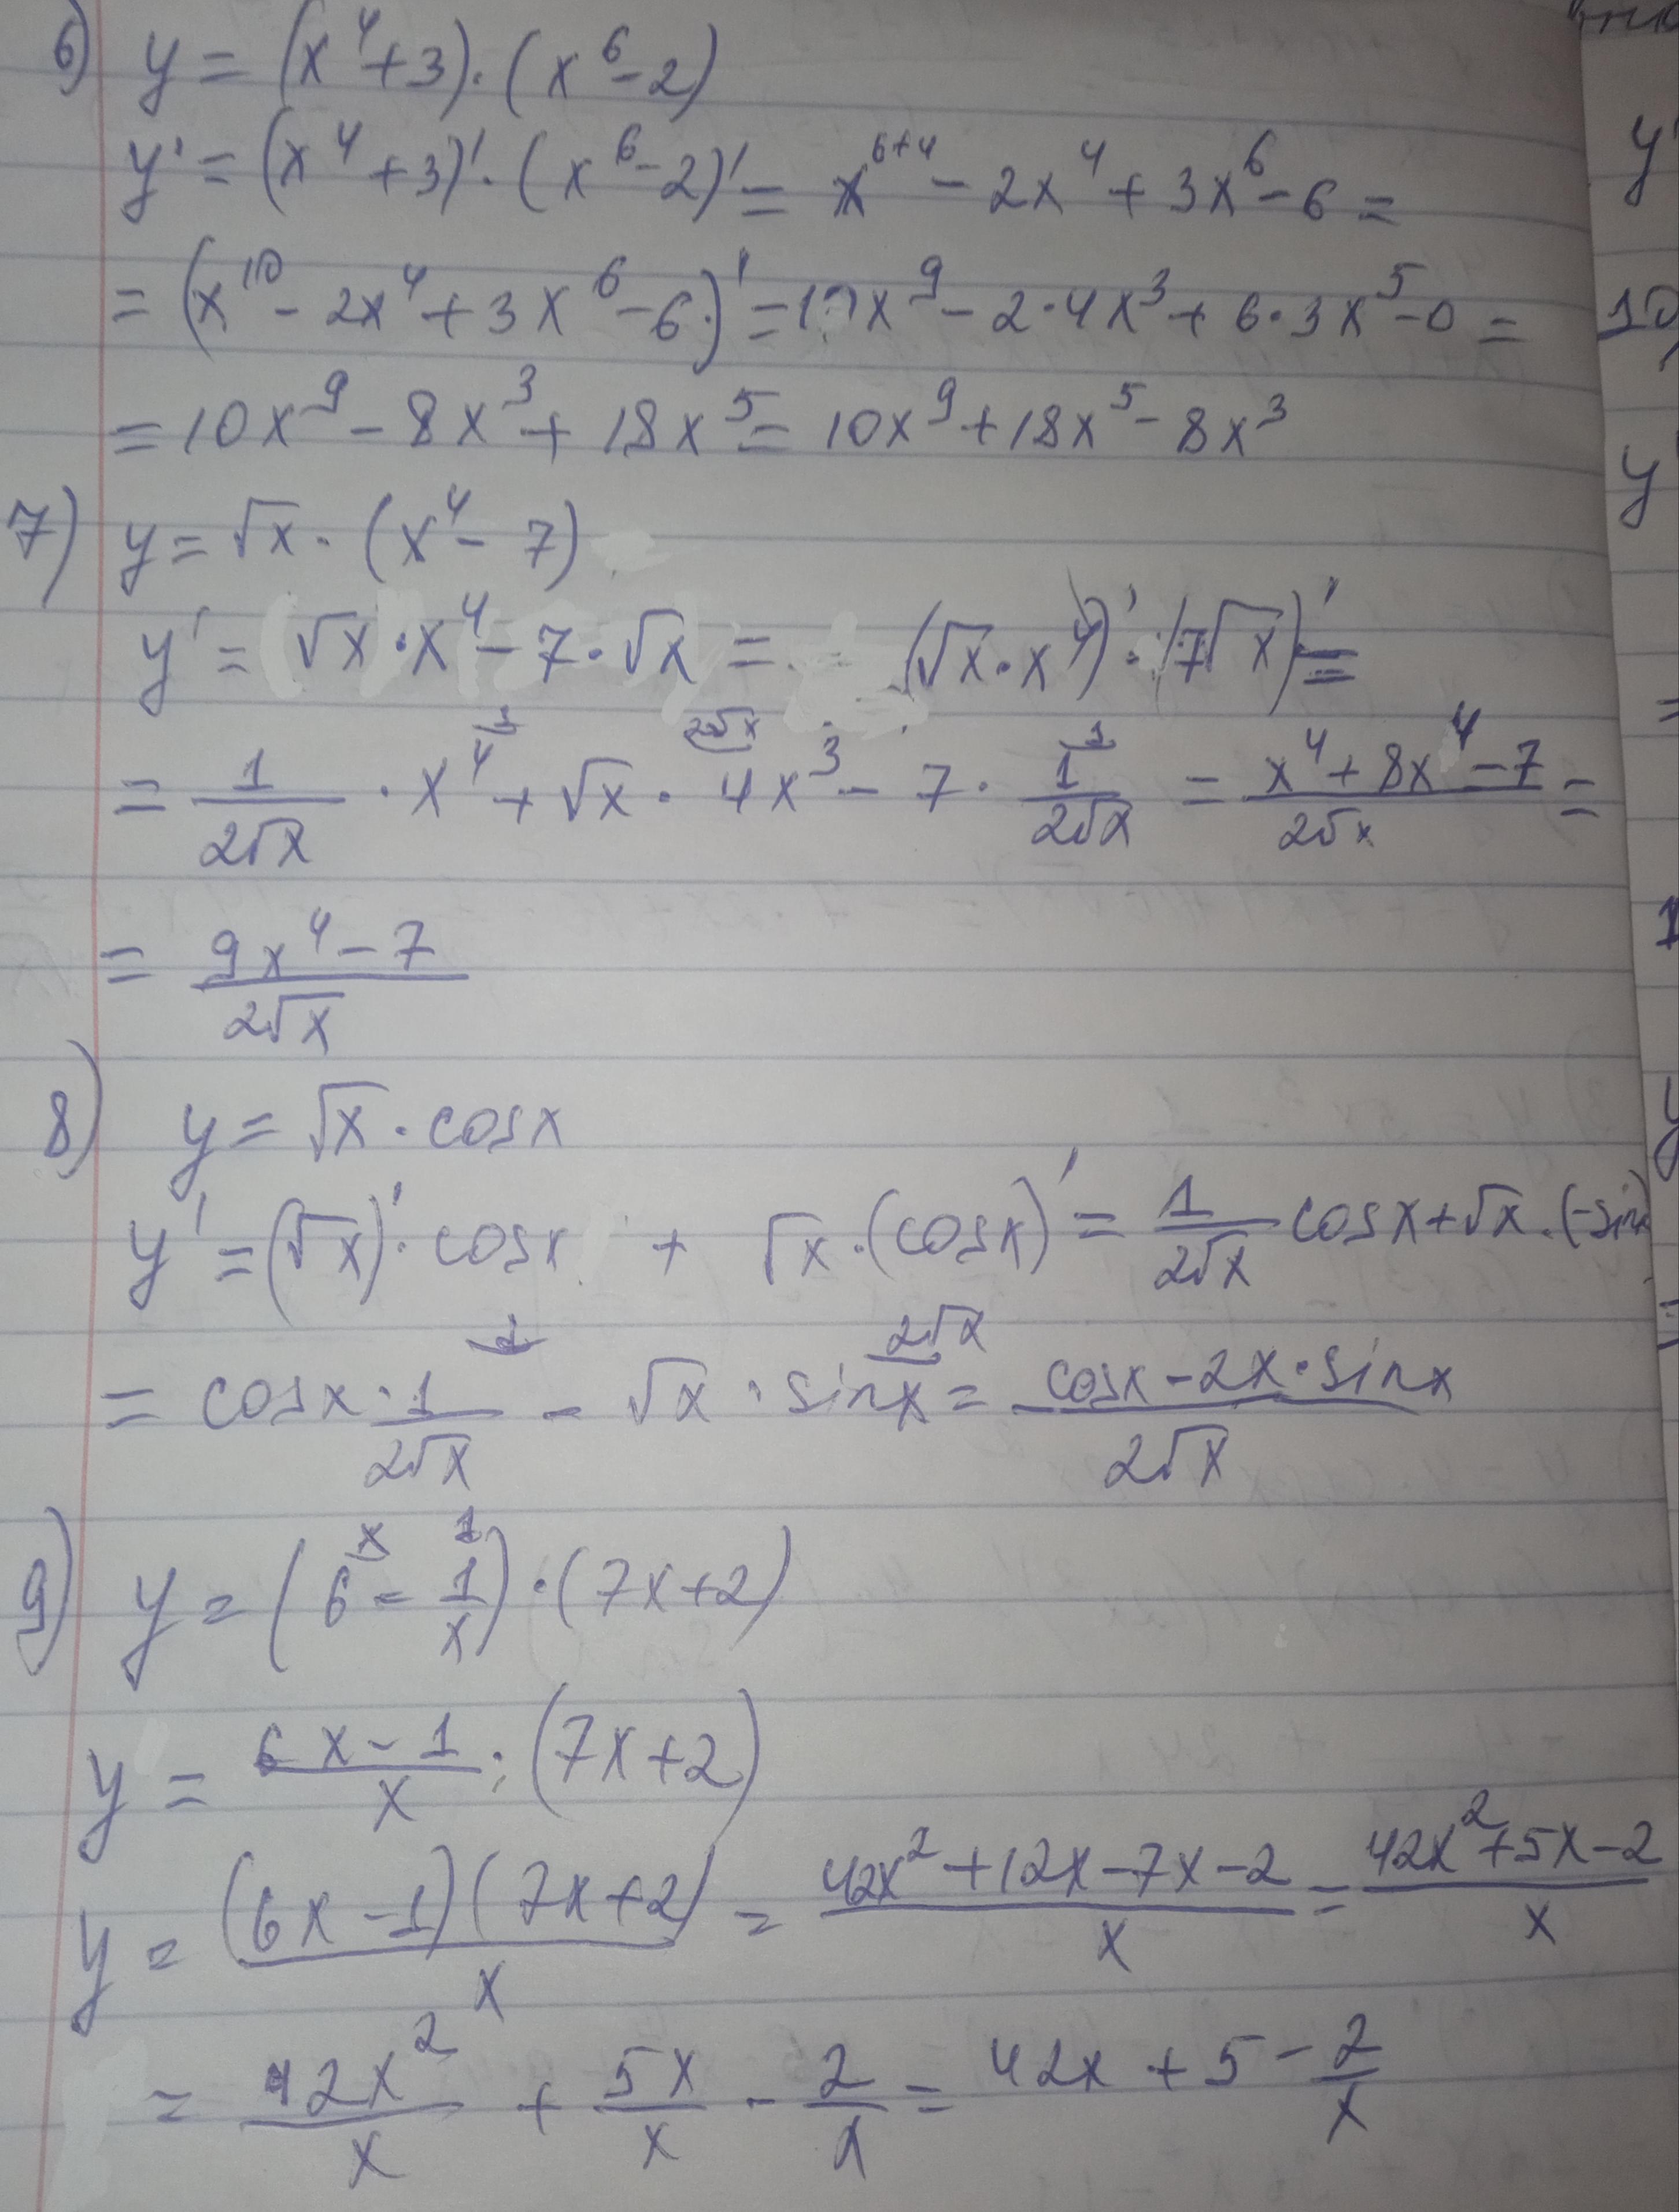 6) y = (x⁴+3)·(x⁶-2)
y' = (x⁴+3)'·(x⁶-2)' = x⁶⁺⁴ - 2x⁴ + 3x⁶ - 6 =
= (x¹⁰ - 2x⁴ + 3x⁶ - 6)' = 10x⁹ - 2·4x³ + 6·3x⁵ - 0 =
= 10x⁹ - 8x³ + 18x⁵ = 10x⁹ + 18x⁵ - 8x³
7) y = √x · (x⁴ - 7)
y' = √x · x⁴ - 7·√x = (√x · x⁴)' · (7√x)' =
= 1/(2√x) · x⁴ + √x · 4x³ - 7 · 1/(2√x) = (x⁴ + 8x⁴ - 7)/(2√x) =
= (9x⁴ - 7)/(2√x)
8) y = √x · cosx
y' = (√x)' · cosx + √x · (cosx)' = 1/(2√x) cosx + √x · (-sinx)
= cosx · 1/(2√x) - √x · sinx = (cosx - 2x · sinx)/(2√x)
9) y = (6 - 1/x) · (7x+2)
y = (6x - 1)/x · (7x+2)
y = (6x - 1)(7x+2)/x = (42x² + 12x - 7x - 2)/x = (42x² + 5x - 2)/x
= 42x²/x + 5x/x - 2/x = 42x + 5 - 2/x